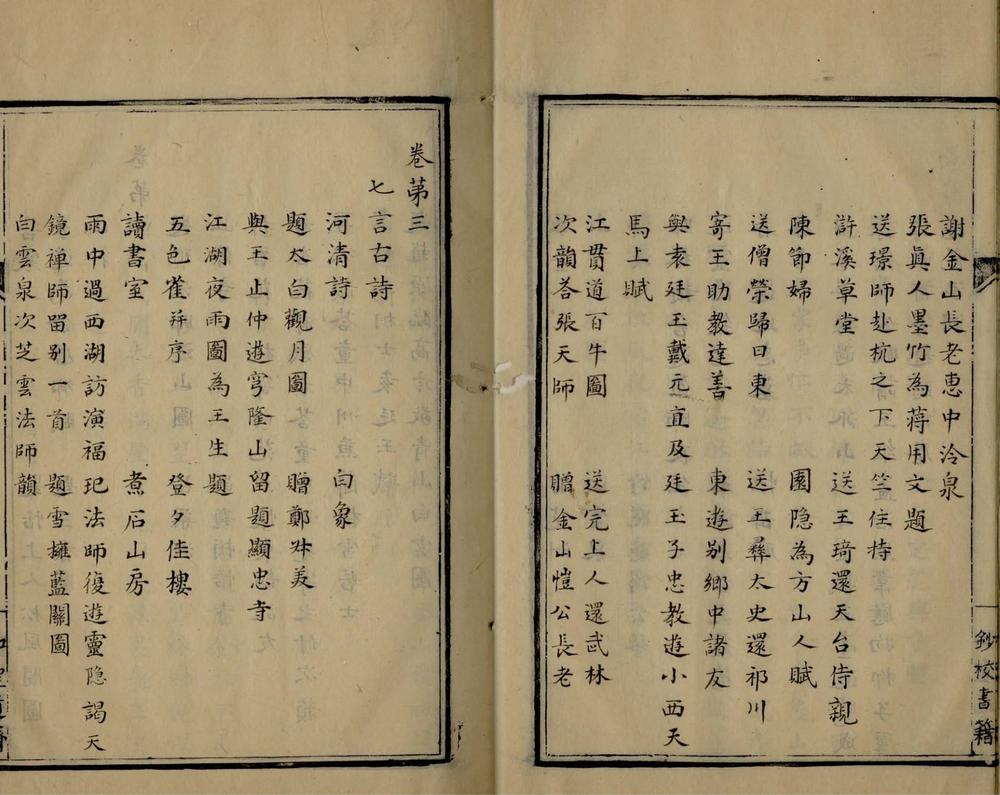 謝金山長老惠中泠泉
張眞人墨竹為蔣用文題
送璟師赴杭之下天竺住持
滸溪草堂　送王琦還天台侍親
陳節婦　園隱為方山人賦
送僧榮歸日東　送王彝太史還祁川
寄王助教達善　東遊别鄉中諸友
與袁廷玉戴元直及廷玉子忠教遊小西天
馬上賦
江貫道百牛圖　送完上人還武林
次韻荅張天師　贈金山愷公長老
鈔校書籍
卷苐三
七言古詩
河清詩　白象
題太白觀月圖　贈鄭叔美
與王止仲遊穹隆山留題顯忠寺
江湖夜雨圖為王生題
五色雀并序　登夕佳樓
讀書室　煮石山房
雨中過西湖訪演福玘法師復遊靈隐謁天
鏡禅師留别一首　題雪擁藍關圖
白雲泉次芝雲法師韻